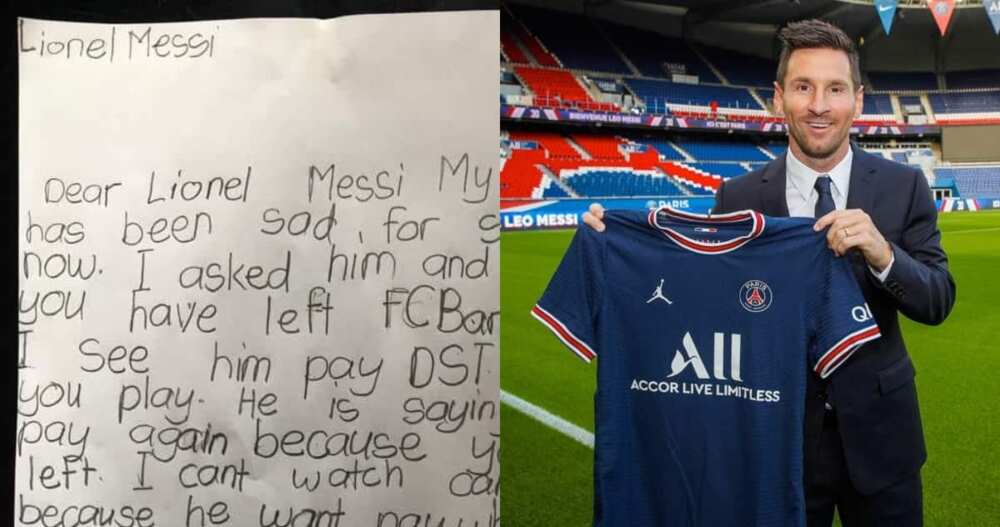 Lionel Messi
Dear Lionel Messi My
has been sad for
now. I asked him and
you have left FCBar
I See him pay DST
you play. He is sayin
pay again because y
left. I cant watch ca
because he want pay
BIENVENUE LEO MESSI
ICI C'EST PARIS
PARIS
LEO MESSI
PARIS
ALL
ACCOR LIVE LIMITLESS